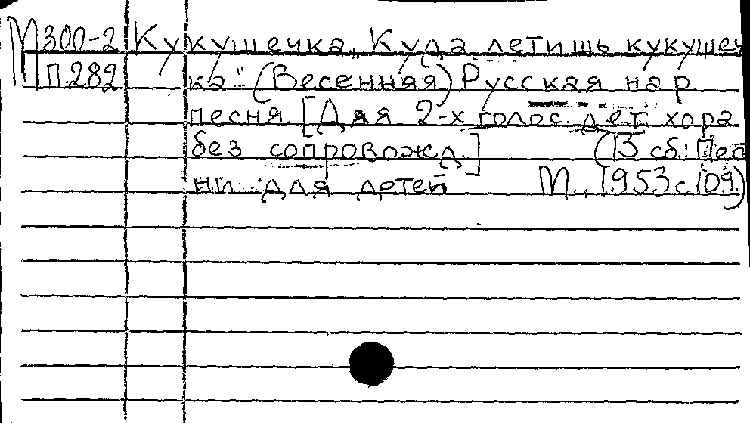 М300-2 Кукушечка „Куда летишь кукушеч
П 282 ка" (Весенняя) Русская нар.
песня [Для 2-х голос. дет. хора
без сопровожд.] (В сб: Пес
ни для детей М., 1953 с 109)